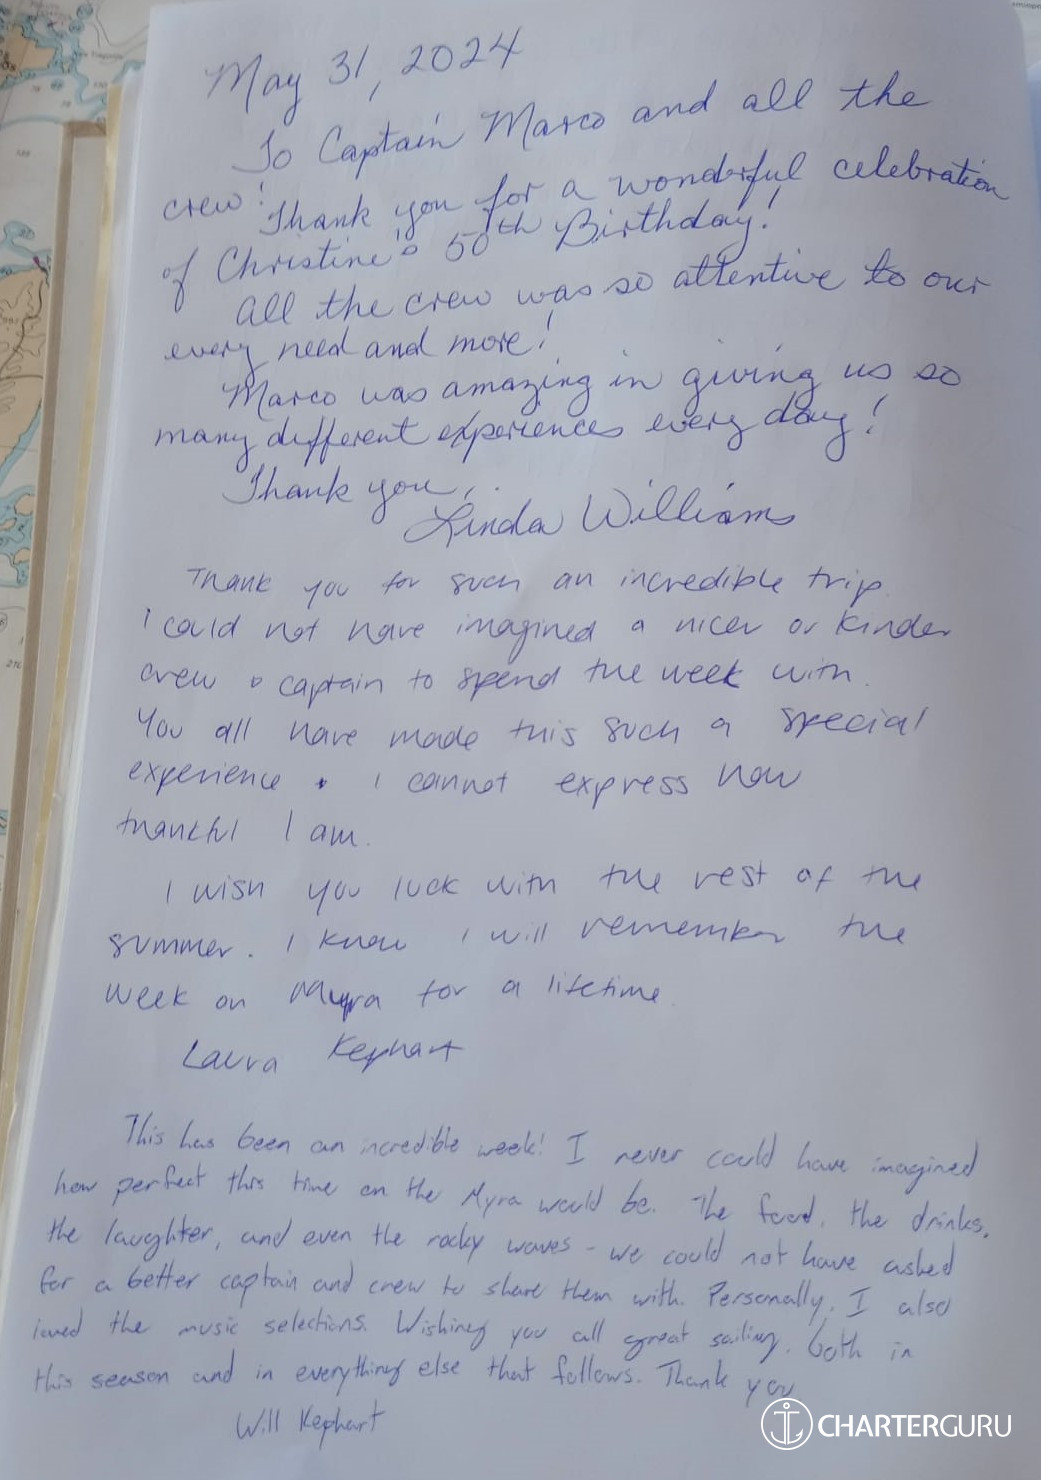 May 31, 2024
To Captain Marco and all the
crew!
Thank you for a wonderful celebration
of Christine's 50th Birthday!
All the crew was so attentive to our
every need and more!
Marco was amazing in giving us so
many different experiences every day!
Thank you,
Linda Williams
Thank you for such an incredible trip.
I could not have imagined a nicer or kinder
crew & captain to spend the week with.
You all have made this such a special
experience & I cannot express how
thankful I am.
I wish you luck with the rest of the
summer. I know I will remember the
week on Myra for a lifetime.
Laura Kephart
This has been an incredible week! I never could have imagined
how perfect this time on the Myra would be. The food, the drinks,
the laughter, and even the rocky waves - we could not have asked
for a better captain and crew to share them with. Personally, I also
loved the music selections. Wishing you all great sailing, both in
this season and in everything else that follows. Thank you
Will Kephart
CHARTERGURU